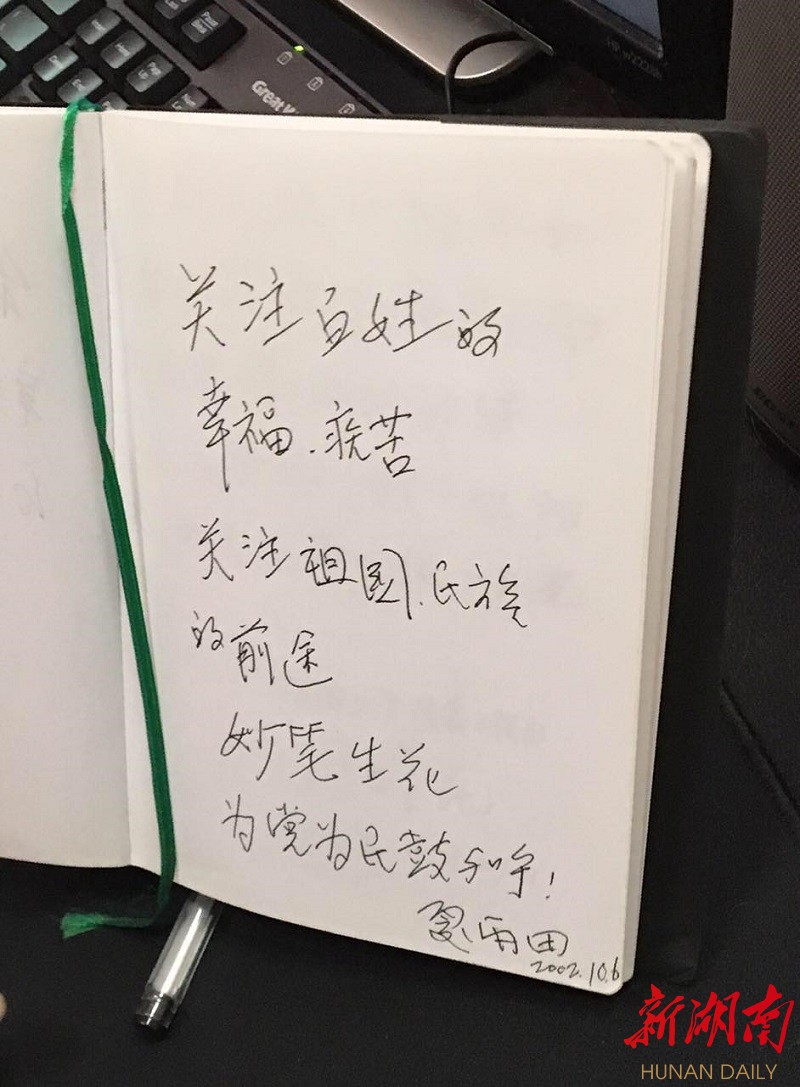 Great W
关注百姓的
幸福、疾苦
关注祖国、民族
的前途
妙笔生花
为党为民鼓和呼!
夏雨田
2002.10.6
新湖南
HUNAN DAILY